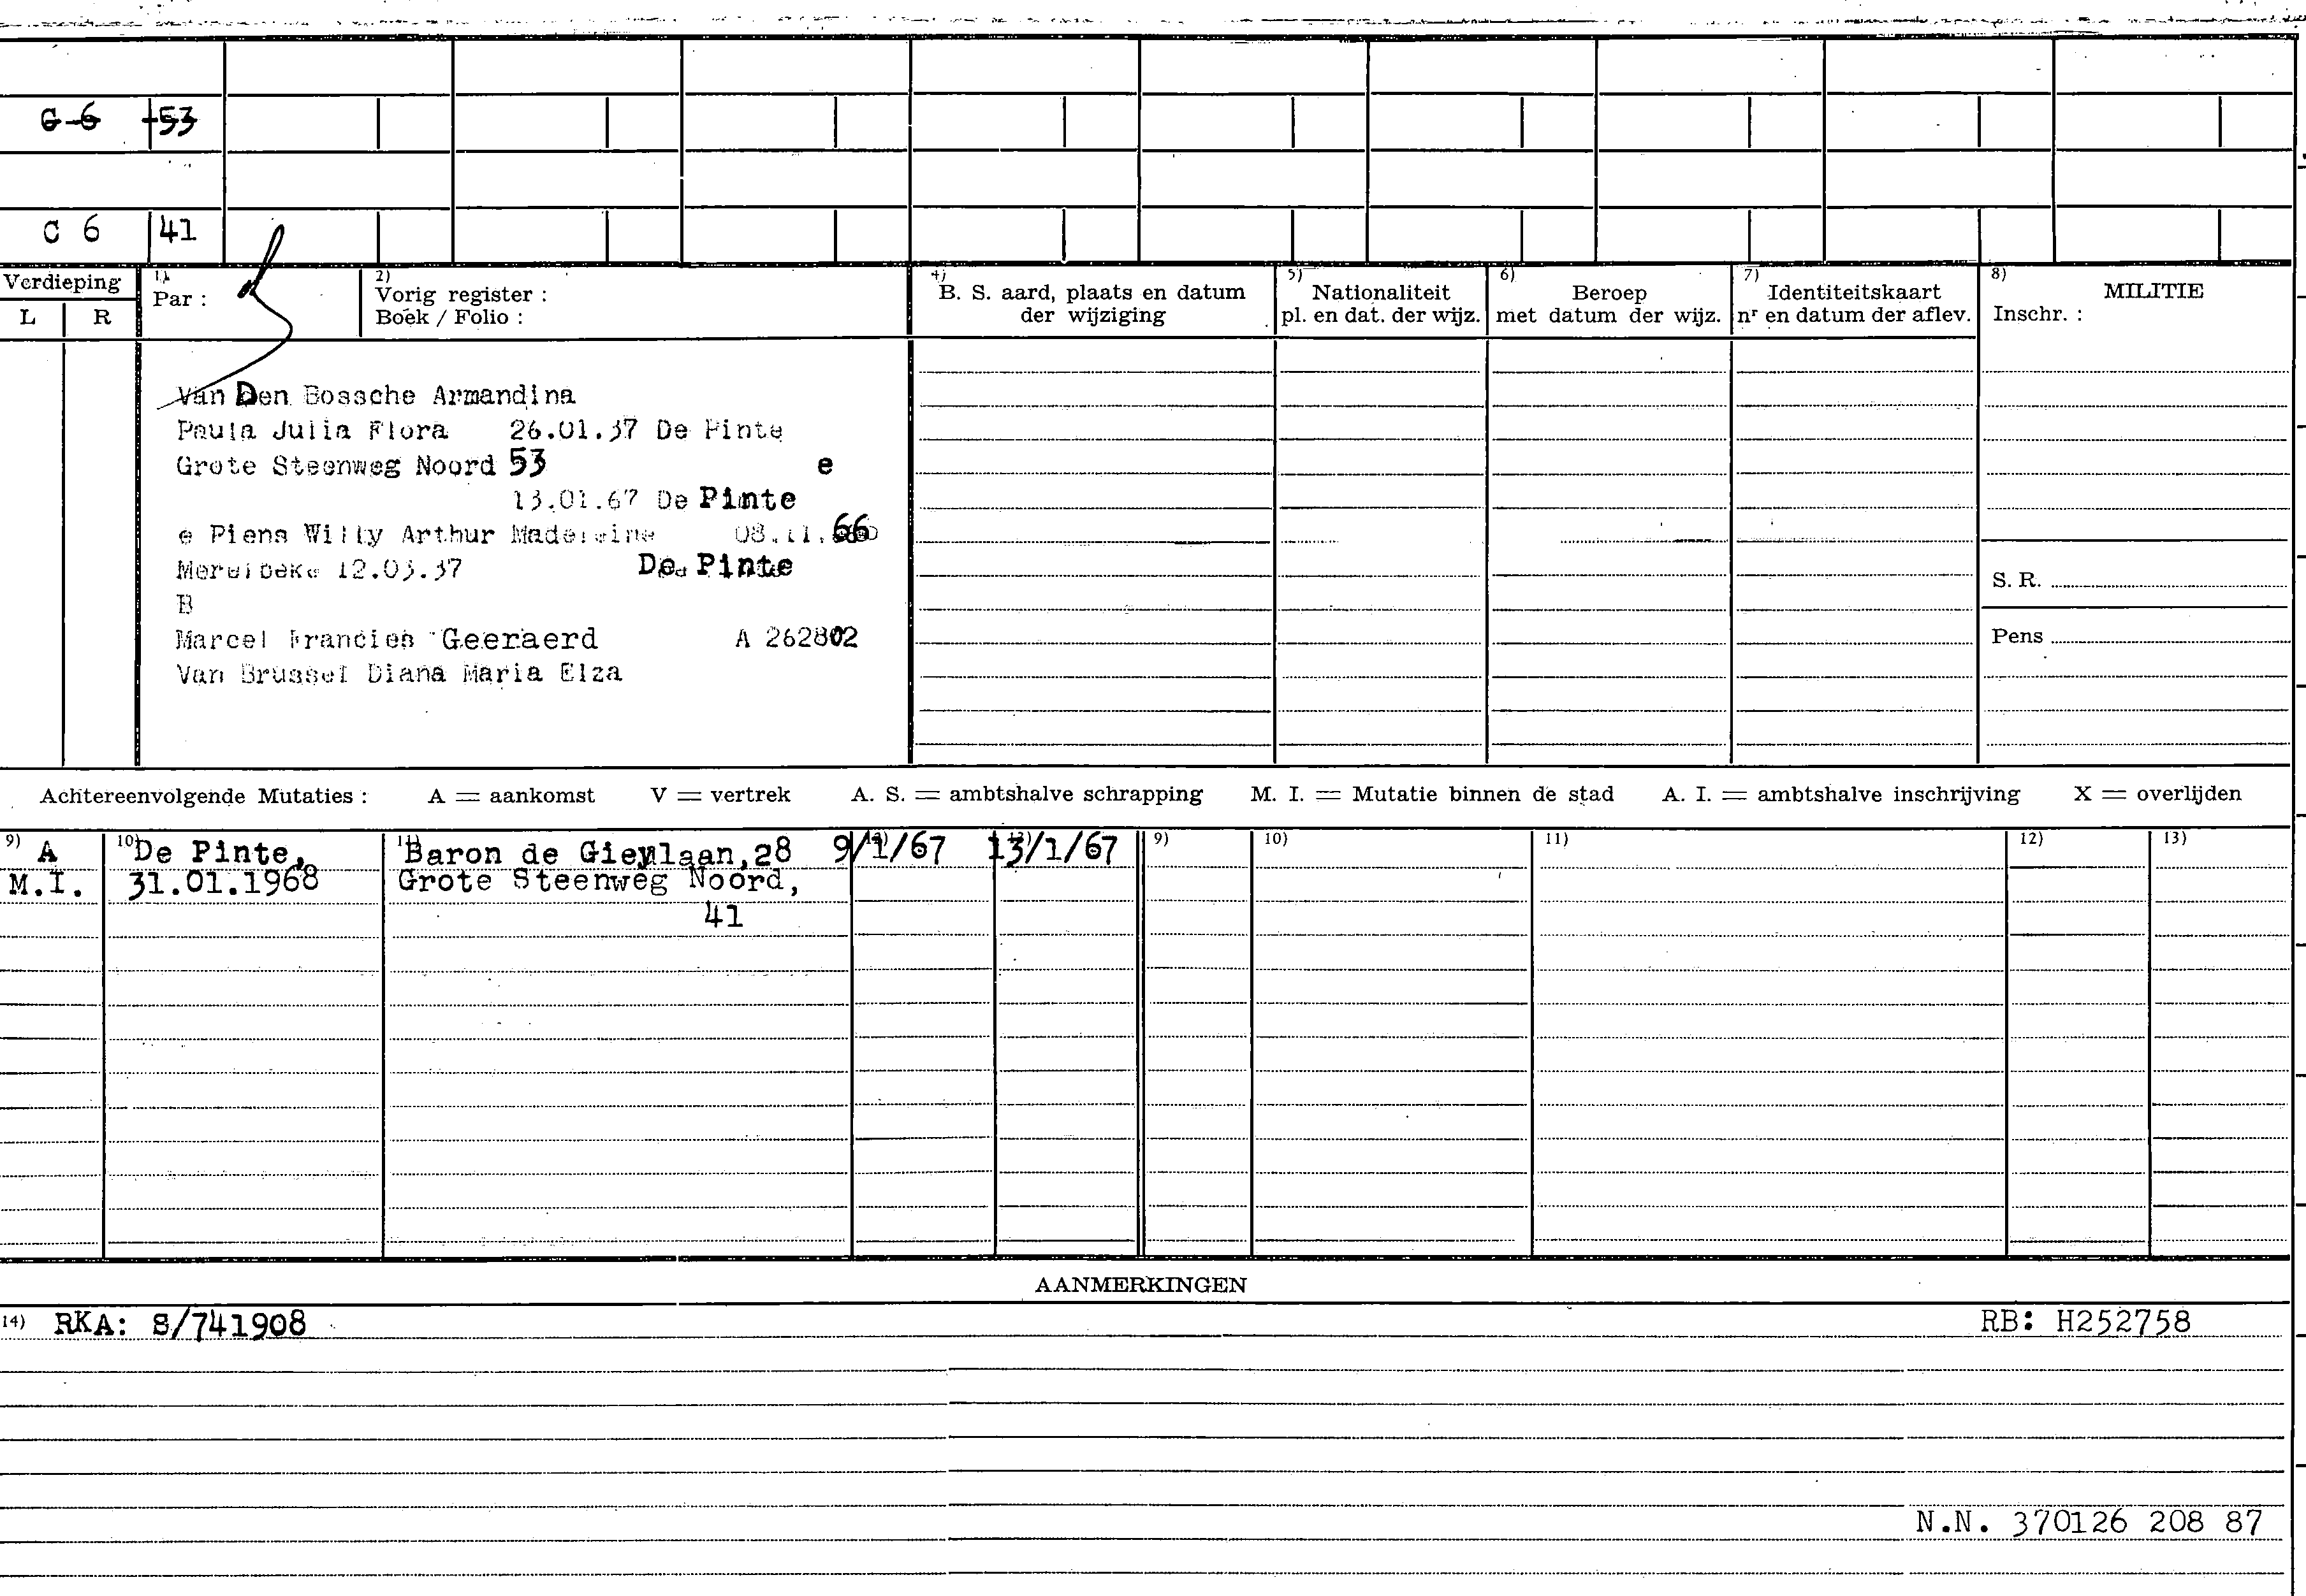 G 6 53
C 6 41
Verdieping
L R
1)
Par :
2)
Vorig register :
Boek / Folio :
4)
B. S. aard, plaats en datum
der wijziging
5)
Nationaliteit
pl. en dat. der wijz.
6)
Beroep
met datum der wijz.
7)
Identiteitskaart
nr en datum der aflev.
8)
MILITIE
Inschr. :
Van Den Bossche Armandina
Paula Julia Flora 26.01.37 De Pinte
Grote Steenweg Noord 53 e
13.01.67 De Pinte
e Piens Willy Arthur Madeleine 08.11.66
Merelbeke 12.03.37 De Pinte
B
Marcel Francies Geeraerd A 262802
Van Brussel Diana Maria Elza
S. R.
Pens
Achtereenvolgende Mutaties : A = aankomst V = vertrek A. S. = ambtshalve schrapping M. I. = Mutatie binnen de stad A. I. = ambtshalve inschrijving X = overlijden
9) 10) 11) 12) 13) 9) 10) 11) 12) 13)
A De Pinte, Baron de Gieylaan,28 9/1/67 13/1/67
M.I. 31.01.1968 Grote Steenweg Noord,
41
AANMERKINGEN
14) RKA: S/741908 RB: H252758
N.N. 370126 208 87